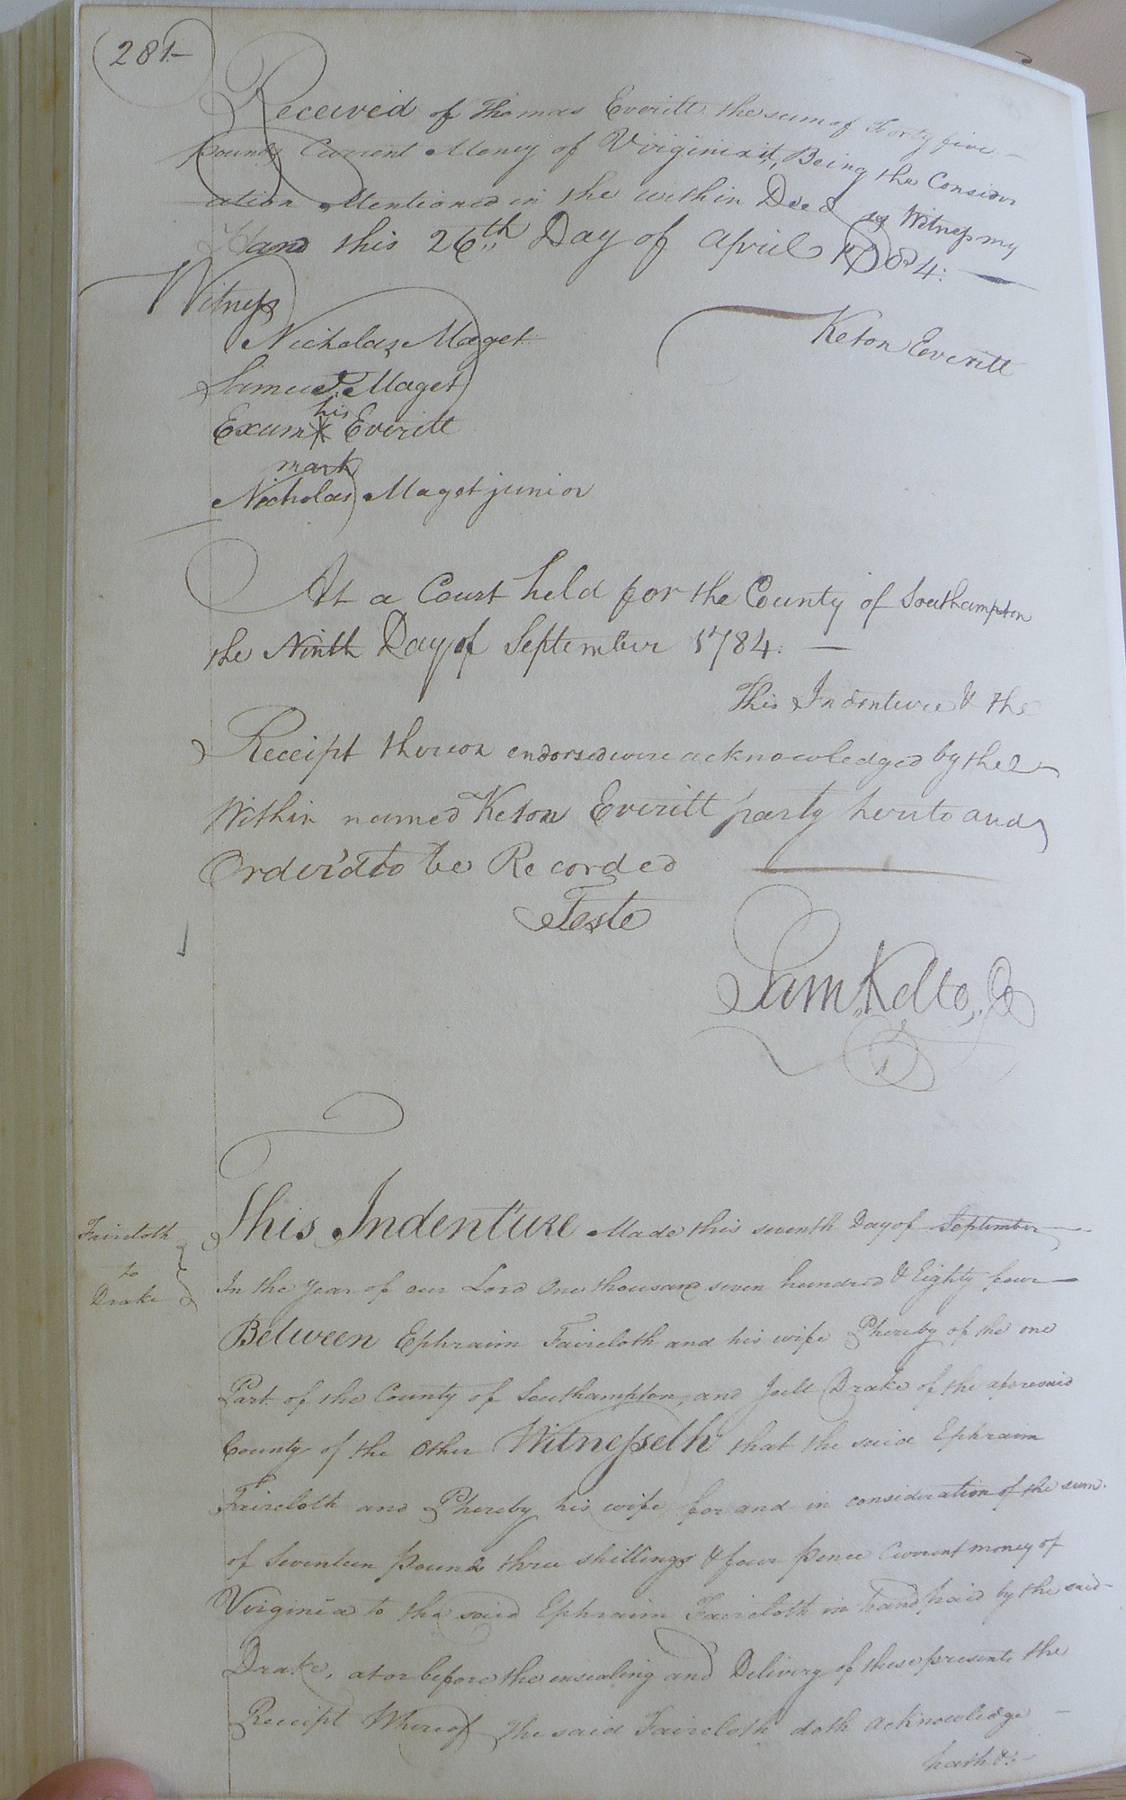 281.-
Received of Thomas Everitt the sum of Forty five
Pounds Current Money of Virginia it, Being the Consider
ation Mentioned in the within Deed as Witness my
Hand this 26th Day of April 1784. —
Witness
Nicholas Maget
Keton Everitt
Samuel Maget
his
Exum X Everitt
mark
Nicholas Maget junior
At a Court held for the County of Southampton
the Ninth Day of September 1784. —
This Indenture & the
Receipt thereon endorsed were acknowledged by the
Within named Keton Everitt party hereto and
Order'd to be Recorded
Teste
Sam. Kello,
Faircloth
to
Drake
This Indenture Made this seventh Day of September
In the Year of our Lord One thousand seven hundred & Eighty four
Between Ephraim Faircloth and his wife Phereby of the one
Part of the County of Southampton, and Joell Drake of the aforesaid
County of the Other Witnesseth that the said Ephraim
Faircloth and Phereby his wife for and in consideration of the sum
of Seventeen Pounds three shillings & four pence Current money of
Virginia to the said Ephraim Faircloth in hand paid by the said
Drake, at or before the ensealing and Delivery of these presents the
Receipt Whereof the said Faircloth doth acknowledge —
hath &c